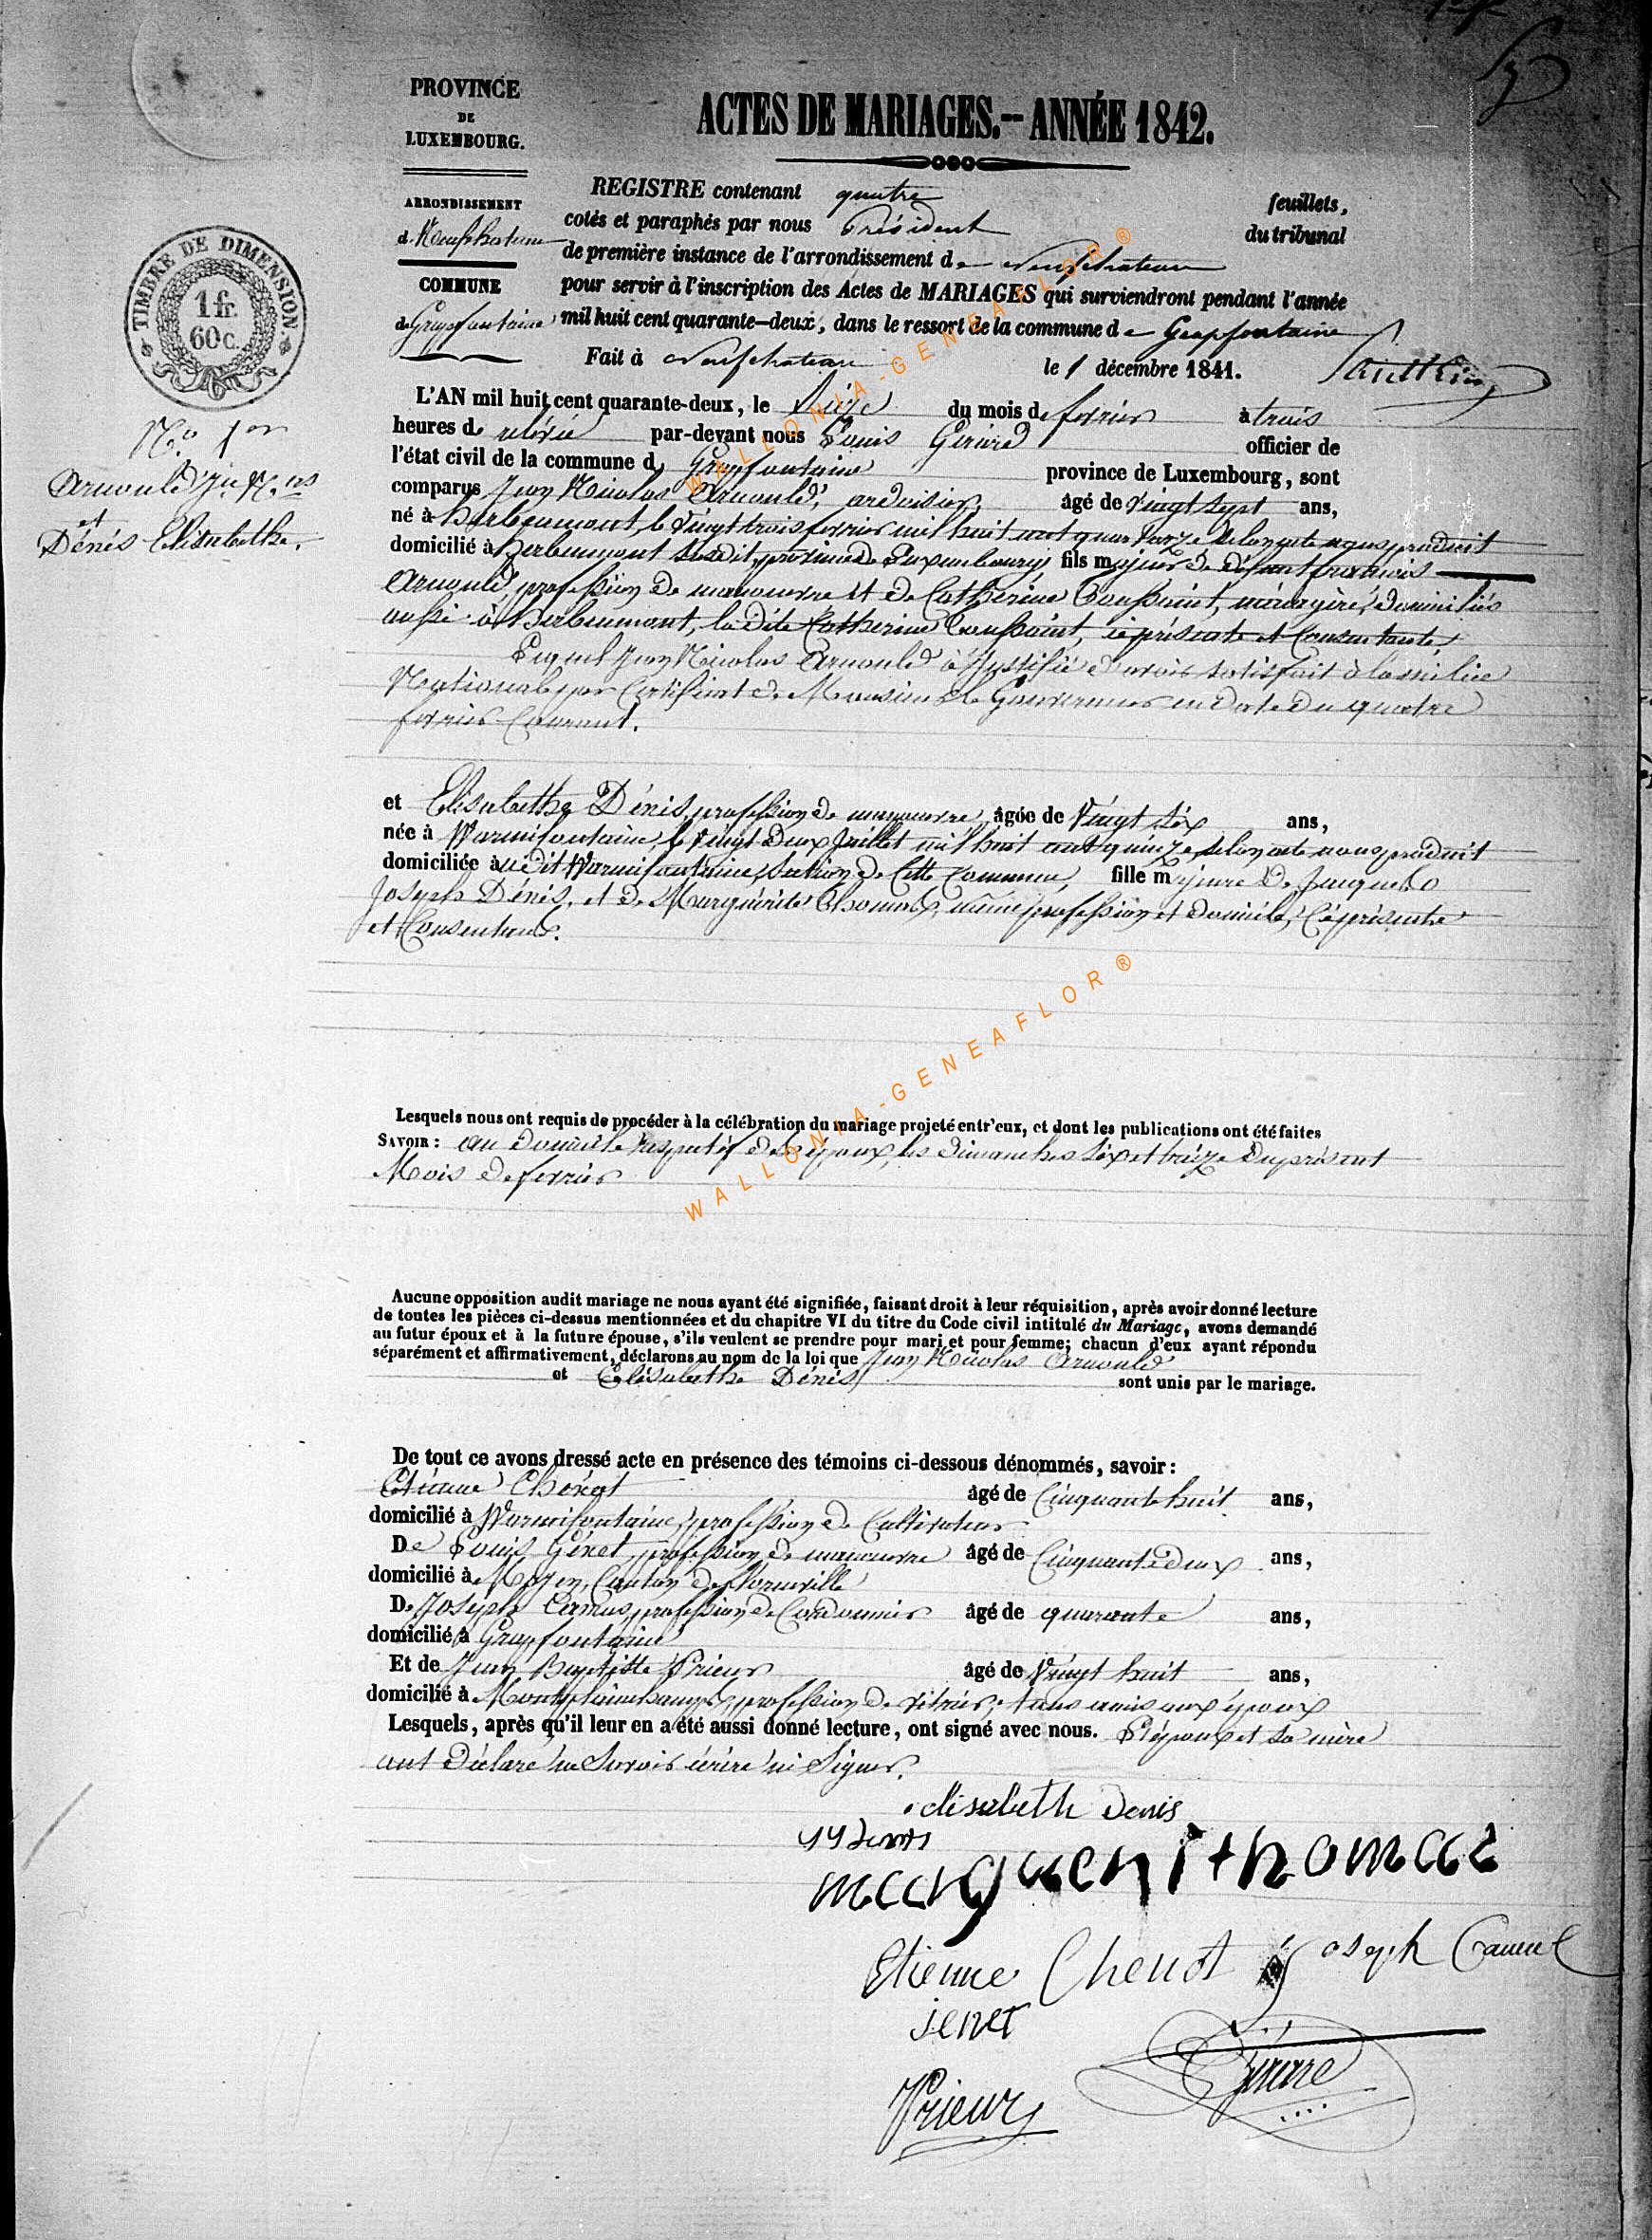 PROVINCE
DE
LUXEMBOURG.
ACTES DE MARIAGES.-- ANNÉE 1842.
ARRONDISSEMENT
d. Neufchateau
COMMUNE
de Grapfontaine
TIMBRE DE DIMENSION
1 fr.
60 c.
REGISTRE contenant quatre feuillets,
cotés et paraphés par nous Président du tribunal
de première instance de l'arrondissement de Neufchateau
pour servir à l'inscription des Actes de MARIAGES qui surviendront pendant l'année
mil huit cent quarante-deux, dans le ressort de la commune de Grapfontaine
Fait à Neufchateau le 1 décembre 1841.
N.o 1er
Arnould Jn Nas
et
Dénis Elisabethe.
L'AN mil huit cent quarante-deux, le Seize du mois de fevrier à trois
heures de relévée par-devant nous Louis Gérard officier de
l'état civil de la commune de Grapfontaine province de Luxembourg, sont
comparus Jean Nicolas Arnould, ardoisier âgé de Vingt Sept ans,
né à herbeumont, le Vingt trois fevrier mil huit cent quatorze selon acte nous produit
domicilié à herbeumont susdit, province de Luxembourg, fils majeur de défunt francois
Arnould, profession de manoeuvre et de Catherine Toussaint, ménagère, domiciliés
aussi à herbeumont, la dite Catherine Toussaint, ici présente et Consentante,
Lequel Jean Nicolas Arnould à Justifié d'avoir satisfait à la milice
Nationale par Certificat de Monsieur le Gouverneur en date du quatre
fevrier Courant.
et Elisabethe Dénis, profession de manoeuvre âgée de Vingt Six ans,
née à Warmifontaine, le Vingt Deux Juillet mil huit cent quinze selon acte nous produit
domiciliée à udit Warmifontaine, Section de Cette Commune, fille majeure de Jacques
Joseph Dénis, et de Marguérite Thomas, même profession et domicile, Ci présents
et Consentans.
Lesquels nous ont requis de procéder à la célébration du mariage projeté entr'eux, et dont les publications ont été faites
SAVOIR : au Domicile respectif des époux, les dimanches Six et treize du présent
Mois de fevrier
Aucune opposition audit mariage ne nous ayant été signifiée, faisant droit à leur réquisition, après avoir donné lecture
de toutes les pièces ci-dessus mentionnées et du chapitre VI du titre du Code civil intitulé du Mariage, avons demandé
au futur époux et à la future épouse, s'ils veulent se prendre pour mari et pour femme; chacun d'eux ayant répondu
séparément et affirmativement, déclarons au nom de la loi que Jean Nicolas Arnould
et Elisabethe Dénis sont unis par le mariage.
De tout ce avons dressé acte en présence des témoins ci-dessous dénommés, savoir :
Etienne Chénot âgé de Cinquante huit ans,
domicilié à Warmifontaine, profession de Cultivateur
De Louis Génet, profession de manoeuvre âgé de Cinquante deux ans,
domicilié à Moyen, Canton de florenville
De Joseph Camus, profession de Cordonnier âgé de quarante ans,
domicilié à Grapfontaine
Et de Jean Baptiste Prieur âgé de Vingt huit ans,
domicilié à Montplainchamps, profession de vitrier, tous amis aux époux
Lesquels, après qu'il leur en a été aussi donné lecture, ont signé avec nous. L'époux et sa mère
ont Déclaré ne Savoir écrire ni Signer.
elisabeth Denis
marguerit homas
Etienne Chenot Joseph Camus
jenet
Gérard
Prieur
WALLONIA-GENEAFLOR ®
WALLONIA-GENEAFLOR ®